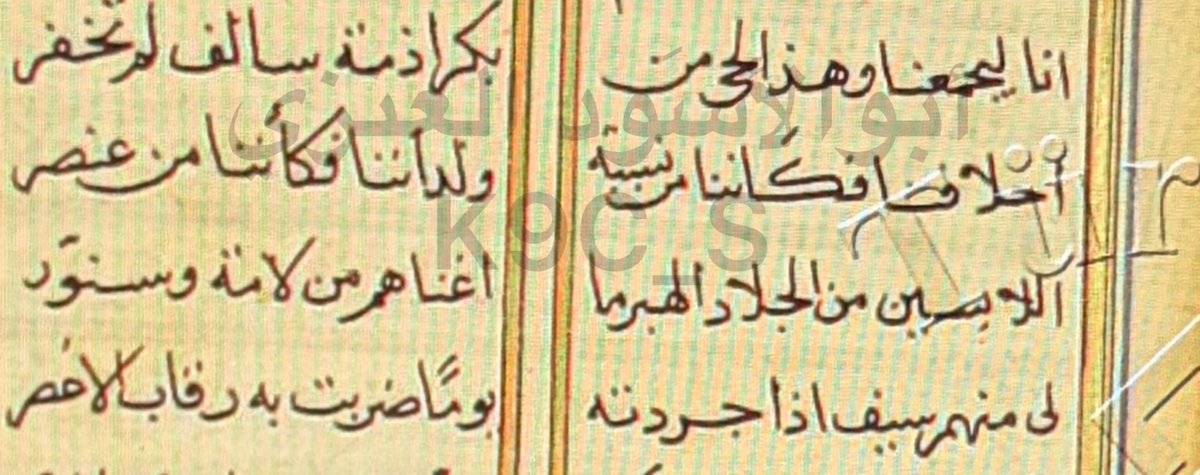 انا ليجمعنا وهذا الحى من بكر اذمة سالف لم تخفر
أخلافنا فكاننا من نسبة ولداتنا فكأننا من عنصر
اللابسين من الجلاد الهبر ما اغناهم من لامة وسنوّر
لى منهم سيف اذا جردته يومًا ضربت به رقاب الاعصر
أبو الأسود العنزي
K9C_S